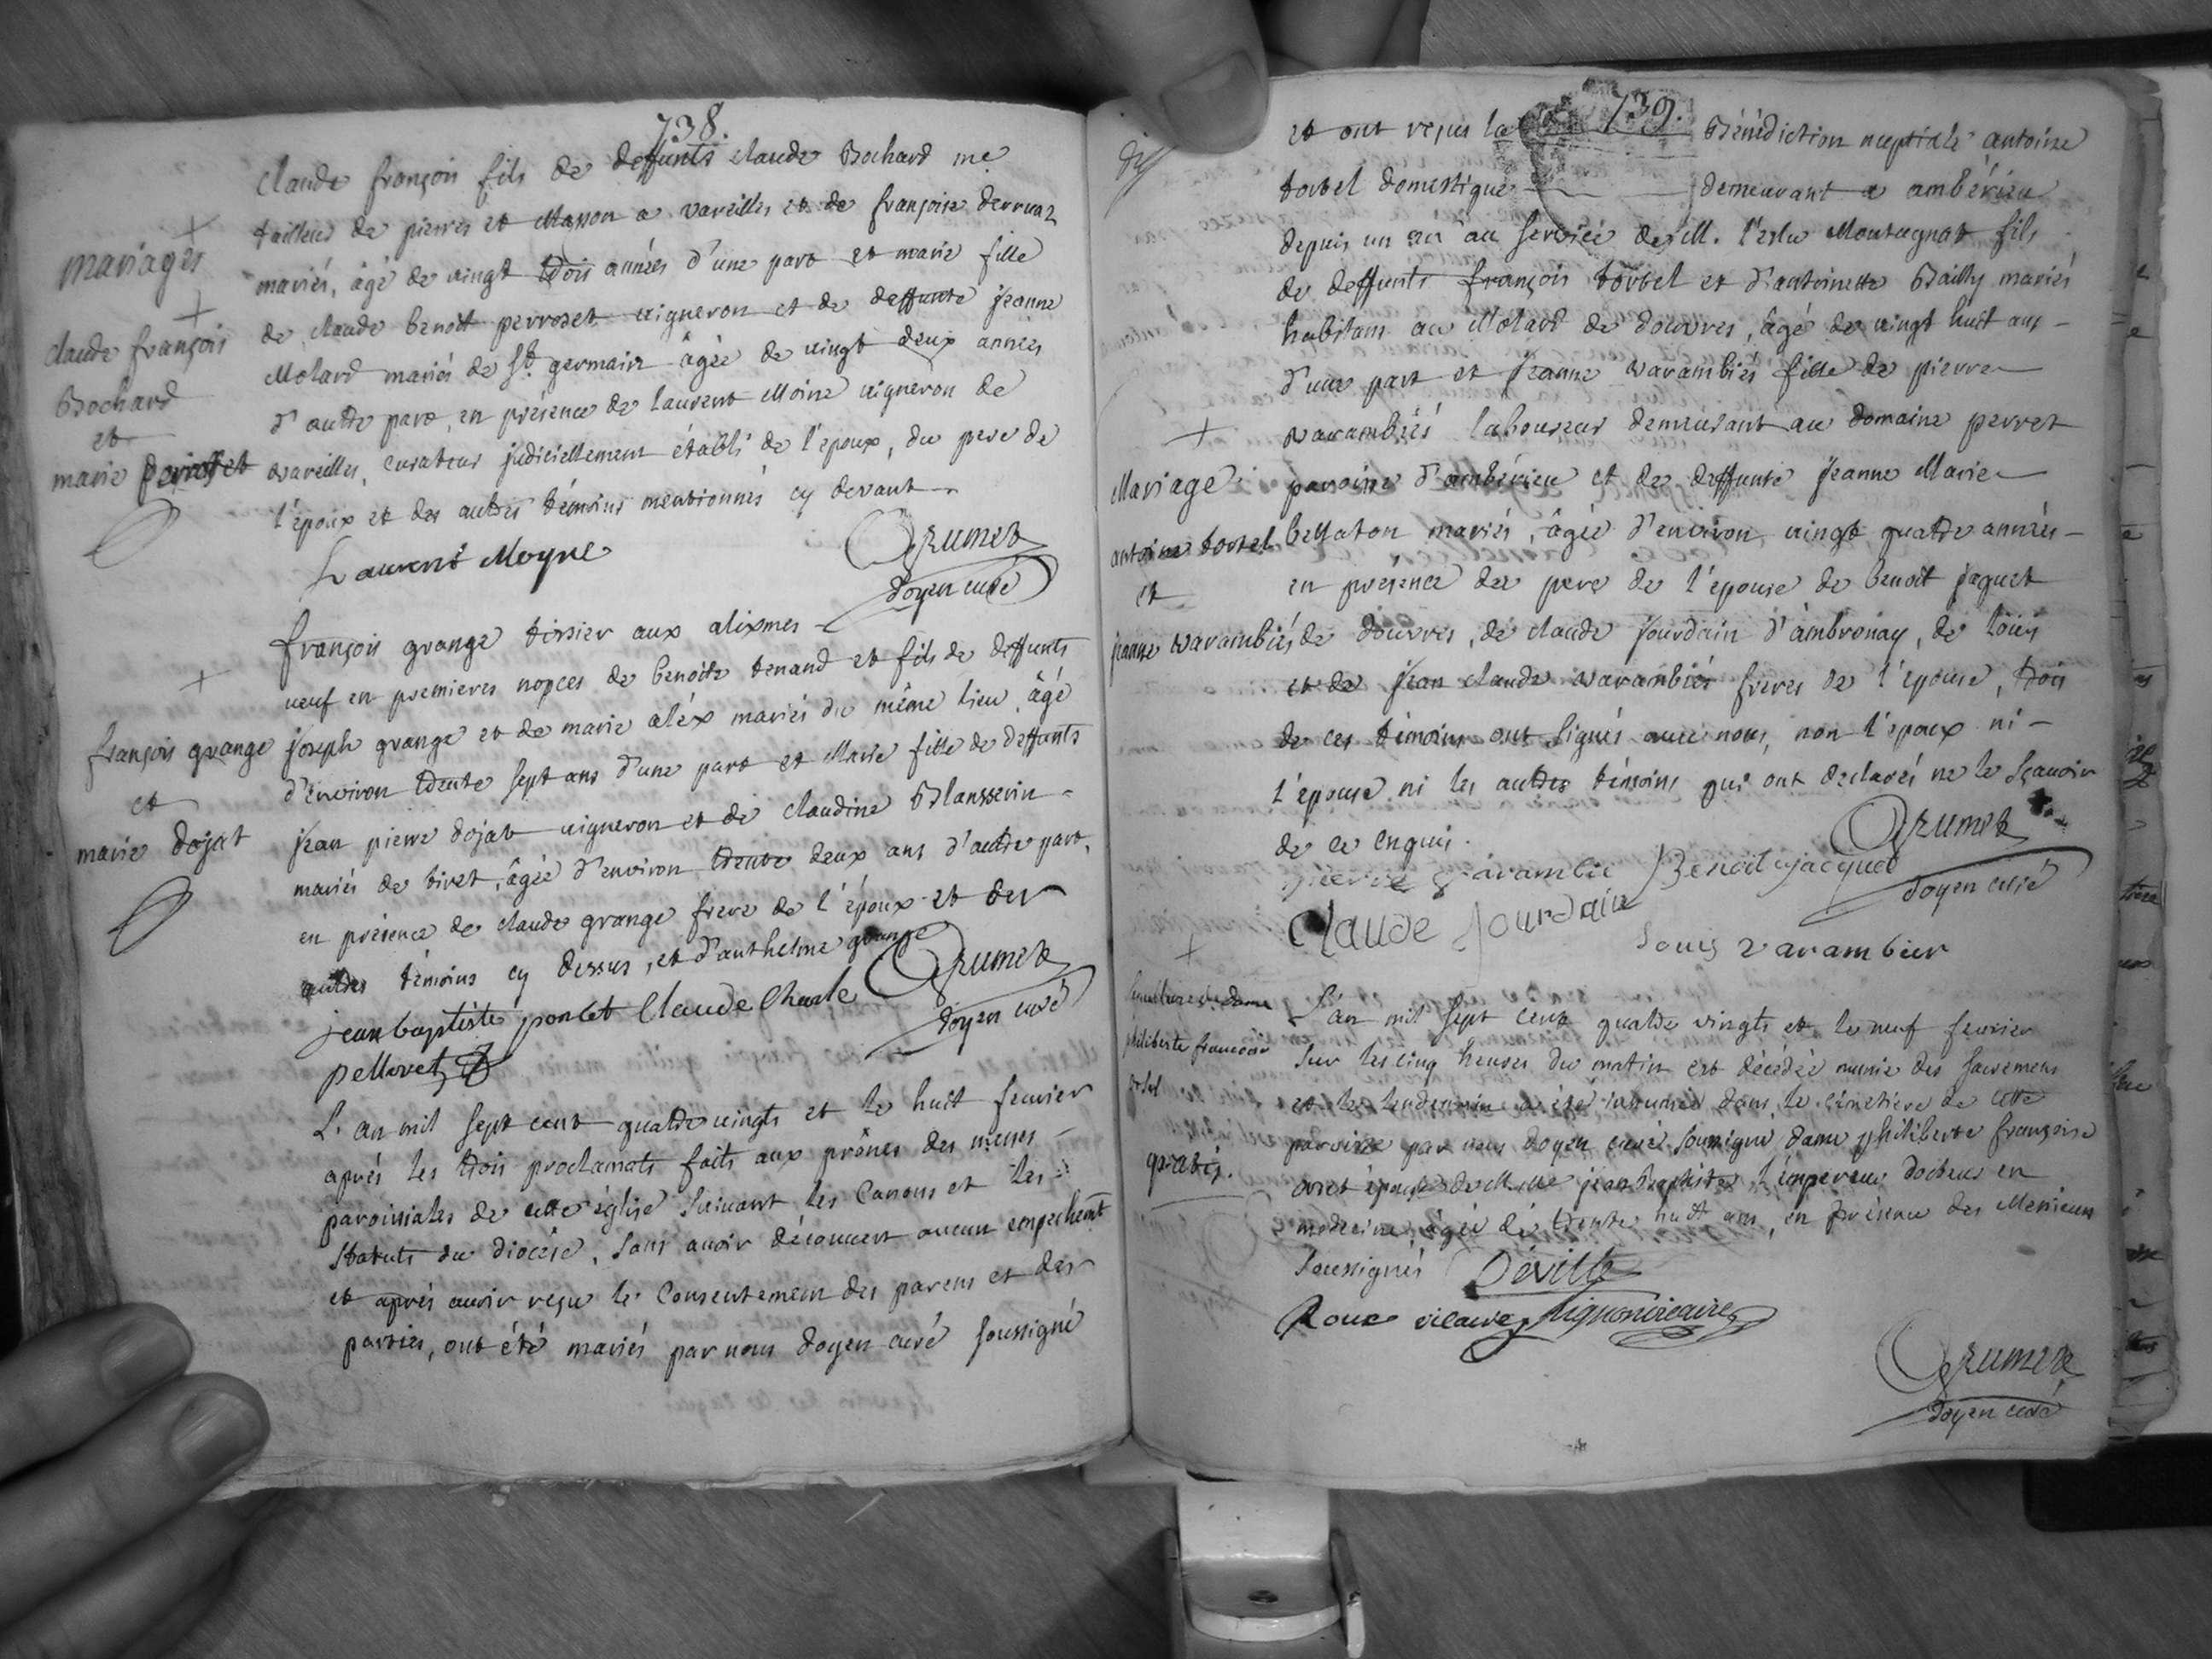 738.
Claude françois fils de deffunts claude Bochard me
tailleur de pierres et Masson a vareilles et de françoise derruaz
mariages
mariés, âgé de vingt trois années d'une part et marie fille
de claude benoît perrozet vigneron et de deffunte jeanne
claude françois
Bochard
et
marie perrozet
Molard mariés de St germain âgée de vingt deux années
d'autre part, en présence de laurent Moine vigneron de
vareilles, curateur judiciellement établi de l'epoux, du pere de
l'époux et des autres témoins mentionnés cy devant
Laurent Moyne
Grumet
doyen curé
françois grange tissier aux alixmes
veuf en premieres nopces de benoite tenand et fils de deffunts
françois grange
et
marie dojat
joseph grange et de marie aléx mariés du même lieu, âgé
d'environ trente sept ans d'une part et Marie fille de deffunts
jean pierre dojat vigneron et de claudine Blanssevin
mariés de tiret, âgée d'environ trente deux ans d'autre part,
en présence de claude grange frere de l'époux et des
autres témoins cy dessus, et d'anthelme grange
Grumet
doyen curé
jean baptiste poncet Claude Charle
pellovet
L'an mil sept cent quatre vingts et le huit feuvrier
aprés les trois proclamats faits aux prônes des messes
paroissiales de cette église suivant les Canons et les
statuts du diocèse, sans avoir découvert aucun empechemt
et aprés avoir reçu le Consentement des parens et des
parties, ont été mariés par nous doyen curé soussigné
739.
et ont reçus la Bénédiction nuptiale antoine
tortel domestique demeurant a ambérieu
depuis un an au service de M. l'eslu Montagnat fils
de deffunts françois tortel et d'antoinette Bailly mariés
habitans au Molard de douvres, âgé de vingt huit ans
d'une part et jeanne varambiés fille de pierre
varambiés laboureur demeurant au domaine perret
Mariage
antoine tortel
et
jeanne varambiés
paroisse d'ambérieu et de deffunte jeanne Marie
bellaton mariés, âgée d'environ vingt quatre années
en présence des pere de l'épouse de benoît jaquet
de douvres, de claude jourdain d'ambronay, de loüis
et de jean claude varambiés freres de l'épouse, trois
de ces témoins ont signés avec nous, non l'époux ni
l'épouse ni les autres témoins qui ont declarés ne le sçavoir
de ce enquis.
Grumet
doyen curé
pierre varambie Benoit jacquet
Claude Jourdain
Louis varambier
Sepulture de dame
philiberte françoise
gratis.
L'an mil sept cent quatre vingts et le neuf feuvrier
sur les cinq heures du matin est décédée munie des sacremens
et le lendemain a été inhumée dans le cimetiere de cette
paroisse par nous doyen curé soussigné dame philiberte françoise
épouse de M. me jean baptiste l'empereur docteur en
medecine, âgée de trente huit ans, en présence des Messieurs
soussignés Déville
Roux vicaire
Grumet
doyen curé